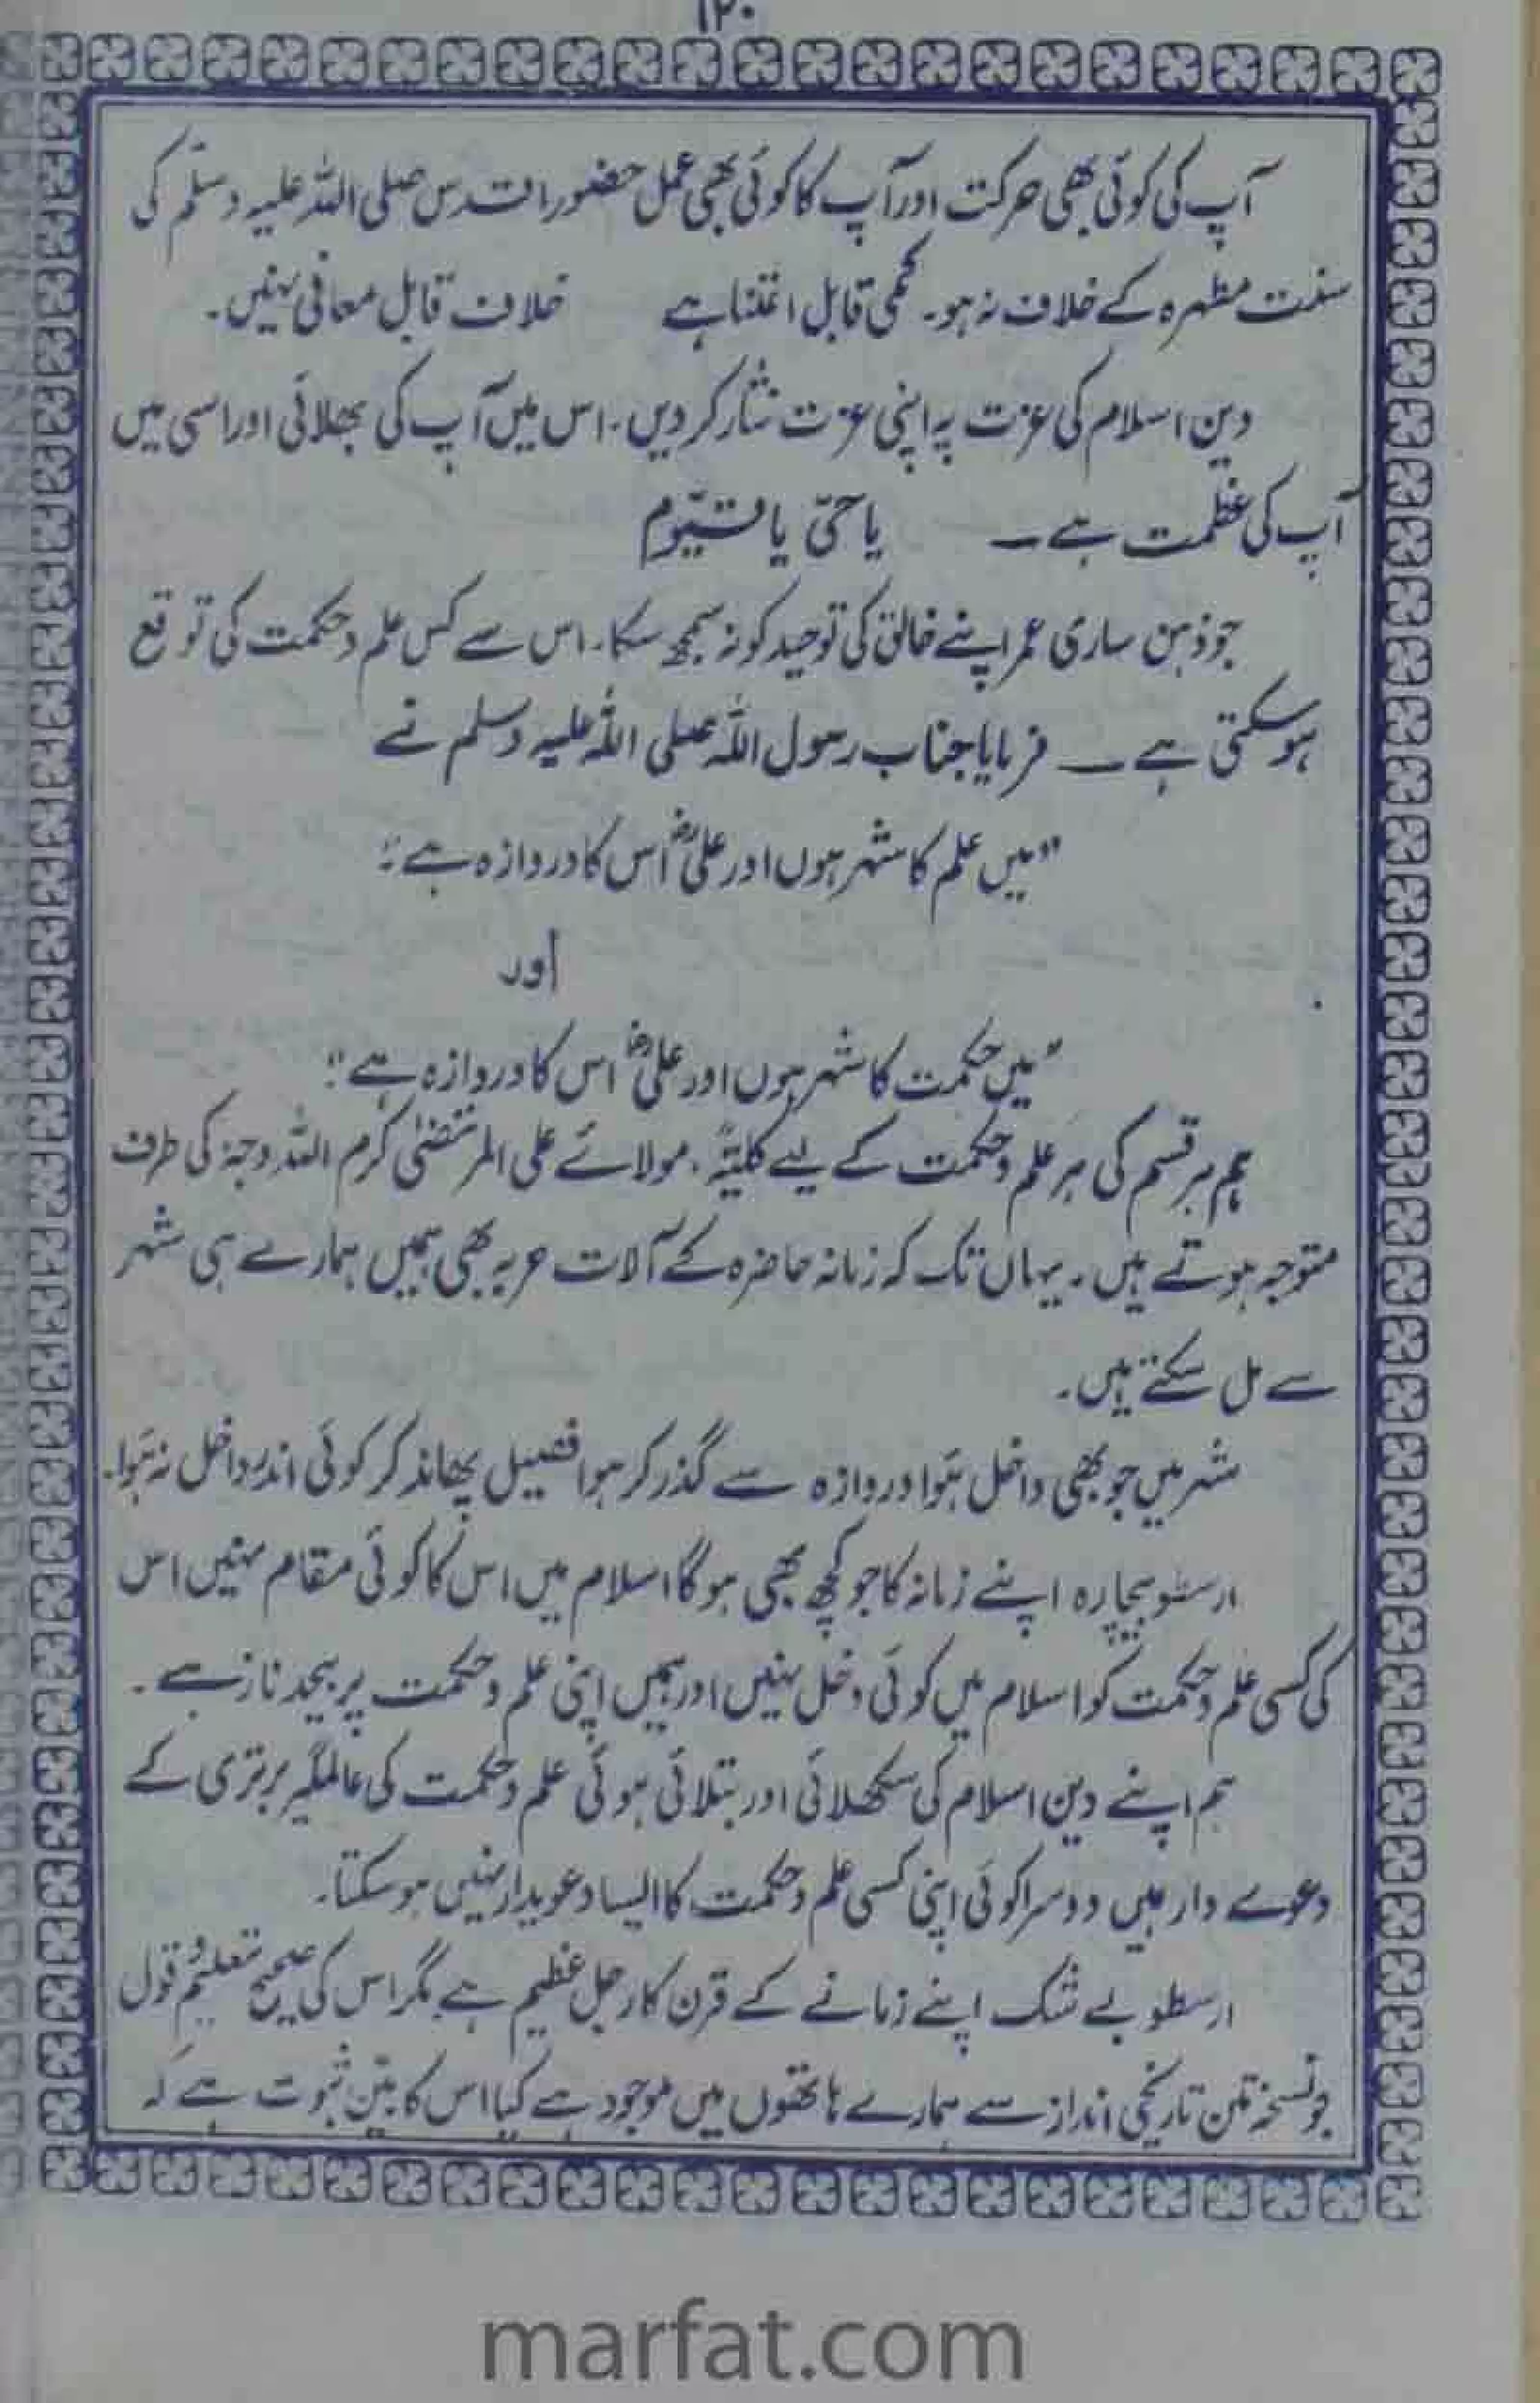 ۱۲۰
آپ کی کوئی بھی حرکت اور آپ کا کوئی بھی عمل حضور اقدس صلی اللہ علیہ وسلّم کی
سنت مطہرہ کے خلاف نہ ہو۔ کمی قابل اعتنا ہے خلاف قابل معافی نہیں۔
دین اسلام کی عزت پہ اپنی عزت نثار کر دیں۔ اس میں آپ کی بھلائی اور اسی میں
آپ کی عظمت ہے ۔ یا حیّ یا قیّوم
جو ذہن ساری عمر اپنے خالق کی توحید کو نہ سمجھ سکا۔ اس سے کس علم و حکمت کی توقع
ہو سکتی ہے ۔ فرمایا جناب رسول اللہ صلی اللہ علیہ وسلم نے
"میں علم کا شہر ہوں اور علیؓ اس کا دروازہ ہے"
اور
"میں حکمت کا شہر ہوں اور علیؓ اس کا دروازہ ہے"
ہم ہر قسم کی ہر علم و حکمت کے لیے کلیۃً، مولائے علی المرتضیٰ کرم اللہ وجہہٗ کی طرف
متوجہ ہوتے ہیں۔ یہاں تک کہ زمانہ حاضرہ کے آلات حربہ بھی ہمیں ہمارے ہی شہر
سے مل سکتے ہیں۔
شہر میں جو بھی داخل ہُوا دروازہ سے گذر کر ہوا فصیل پھاند کر کوئی اندر داخل نہ ہُوا۔
ارسطو بیچارہ اپنے زمانہ کا جو کچھ بھی ہو گا اسلام میں اس کا کوئی مقام نہیں اس
کی کسی علم و حکمت کو اسلام میں کوئی دخل نہیں اور ہمیں اپنی علم و حکمت پر بیحد ناز ہے۔
ہم اپنے دین اسلام کی سکھلائی اور بتلائی ہوئی علم و حکمت کی عالمگیر برتری کے
دعوے دار ہیں دوسرا کوئی اپنی کسی علم و حکمت کا ایسا دعویدار نہیں ہو سکتا۔
ارسطو بے شک اپنے زمانے کے قرن کا رجل عظیم ہے مگر اس کی صحیح تعلیم و قول
جو نسخہ متن تاریخی انداز سے ہمارے ہاتھوں میں موجود ہے کیا اس کا بیّن ثبوت ہے کہ
marfat.com